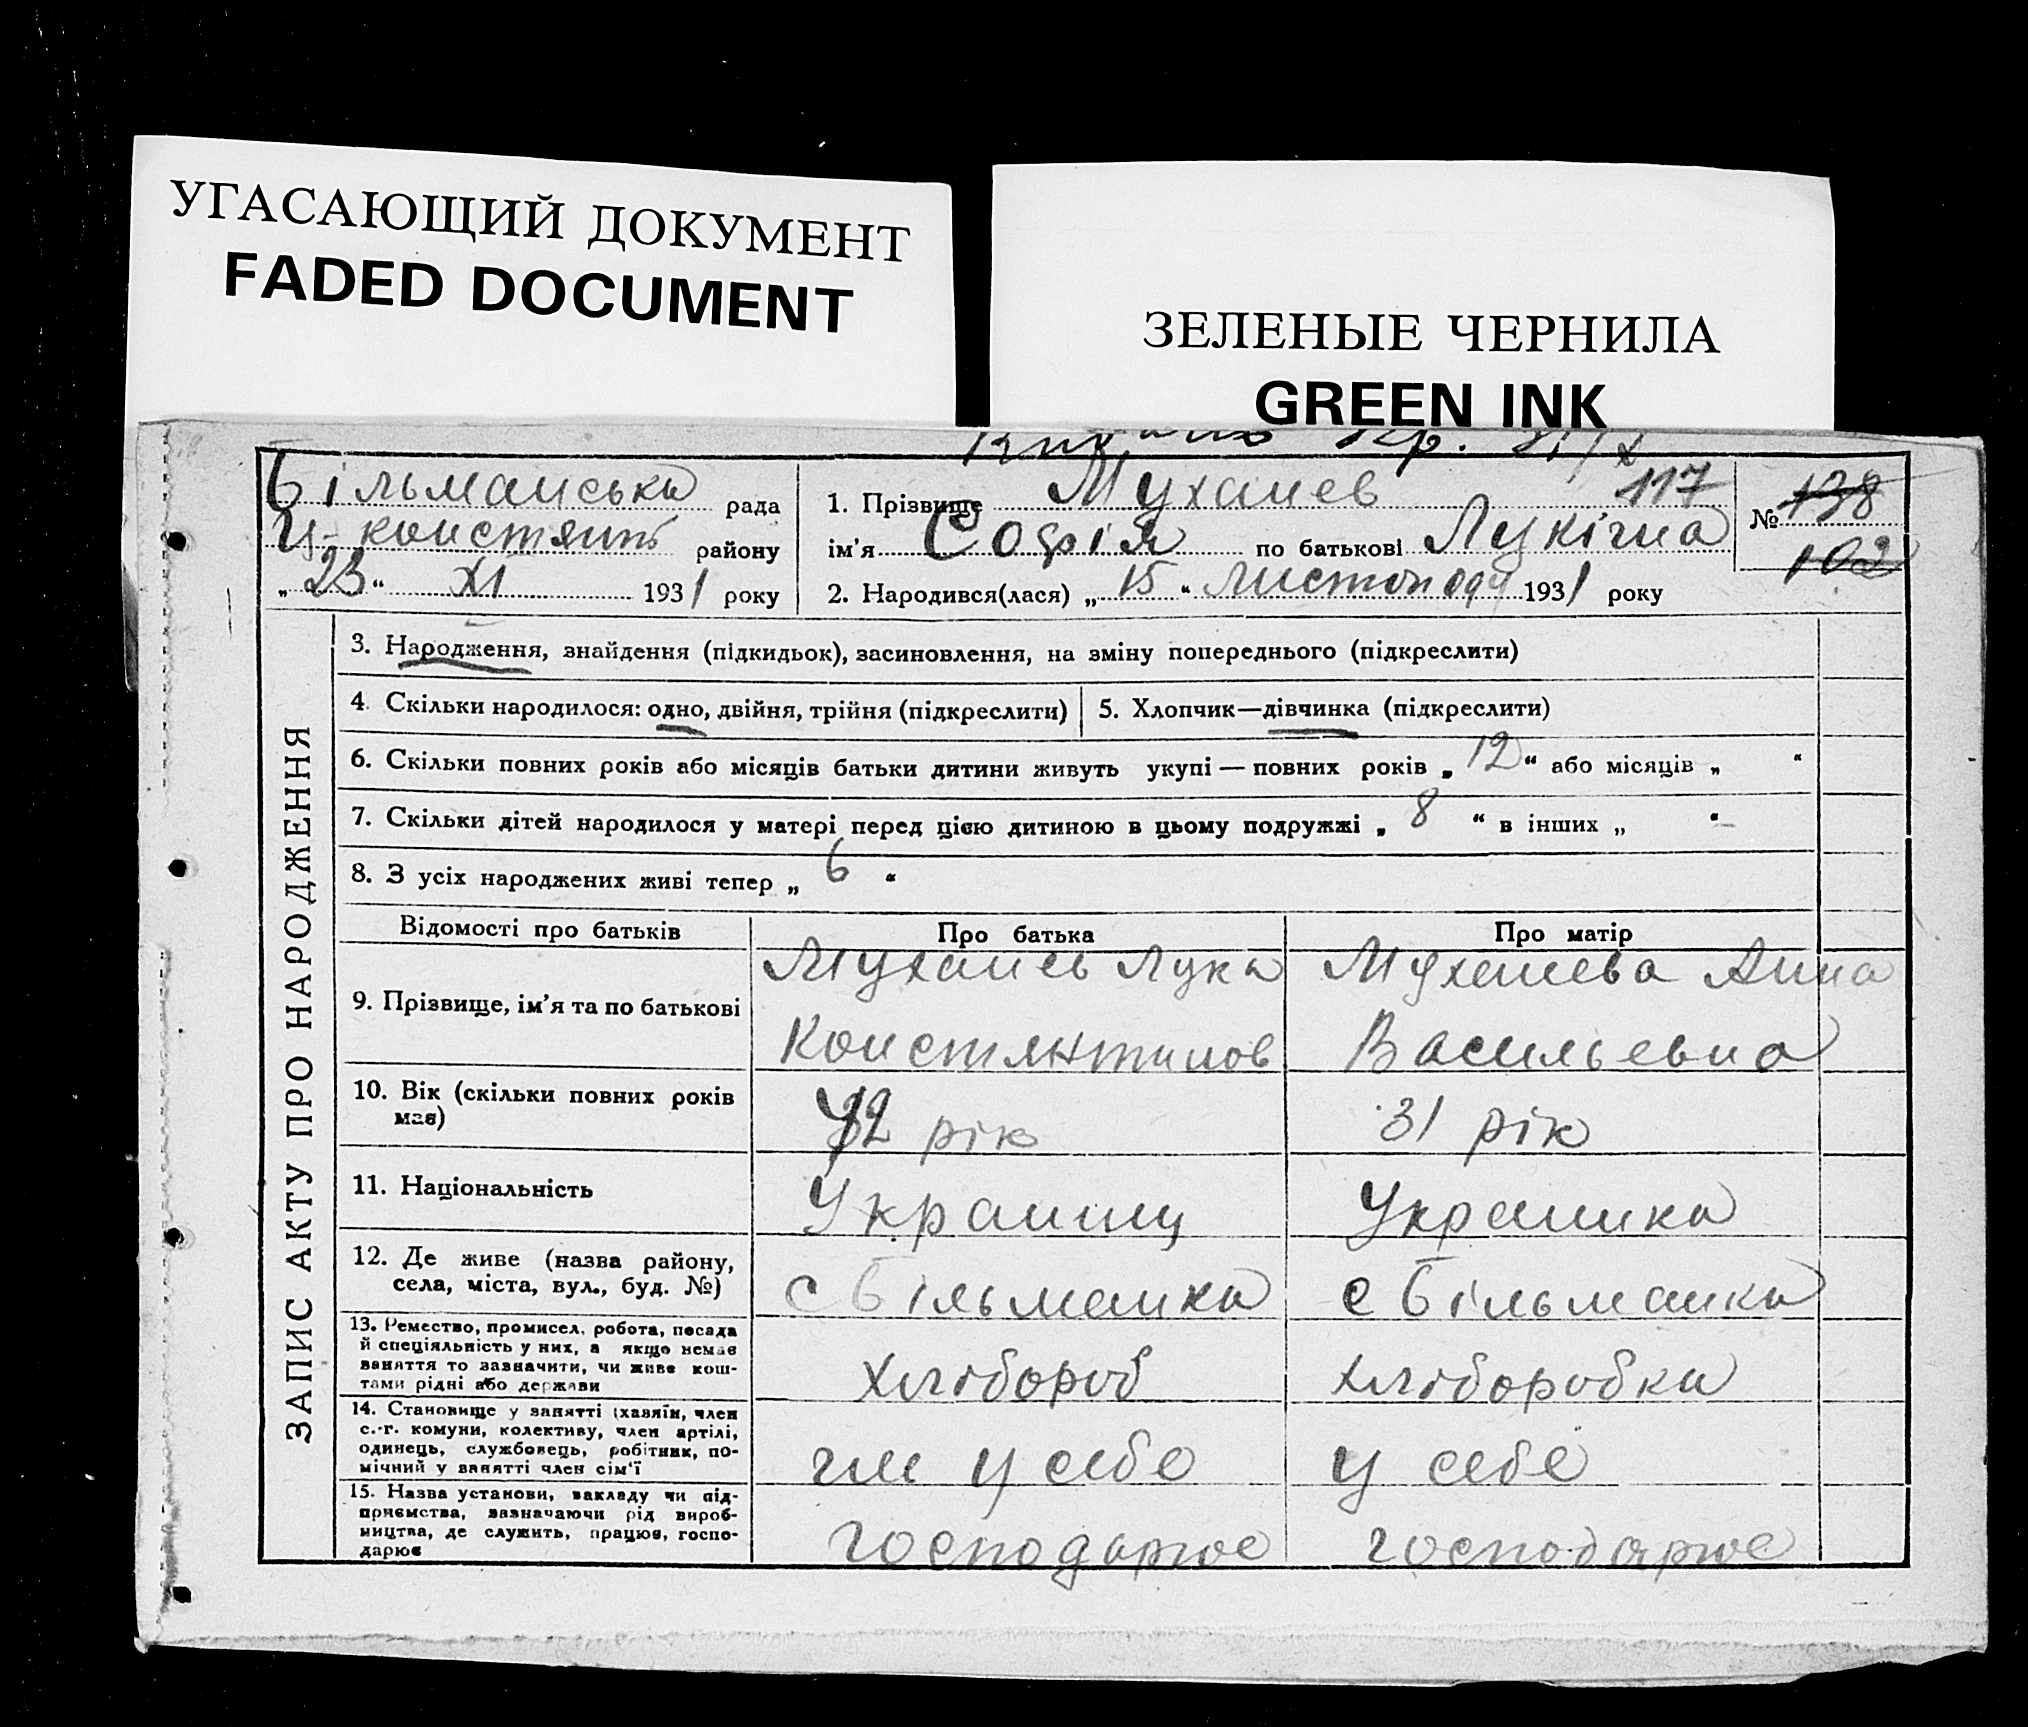 УГАСАЮЩИЙ ДОКУМЕНТ
FADED DOCUMENT
ЗЕЛЕНЫЕ ЧЕРНИЛА
GREEN INK
Більманська рада
Ц-констянт району
„ 23 “ XI 1931 року
1. Прізвище Муханев 117
ім'я Софія по батькові Лукігна
2. Народився(лася) „ 15 “ Листоподу 1931 року
№ 138
102
ЗАПИС АКТУ ПРО НАРОДЖЕННЯ
3. Народження, знайдення (підкидьок), засиновлення, на зміну попереднього (підкреслити)
4. Скільки народилося: одно, двійня, трійня (підкреслити)
5. Хлопчик—дівчинка (підкреслити)
6. Скільки повних років або місяців батьки дитини живуть укупі — повних років „ 12 “ або місяців „ “
7. Скільки дітей народилося у матері перед цією дитиною в цьому подружжі „ 8 “ в інших „ – “
8. З усіх народжених живі тепер „ 6 “
Відомості про батьків
Про батька
Про матір
9. Прізвище, ім'я та по батькові
Муханев Лука
Констянтинов
Муханева Анна
Васильевна
10. Вік (скільки повних років
має)
32 рік
31 рік
11. Національність
Украинц
Украинка
12. Де живе (назва району,
села, міста, вул., буд. №)
с Більманка
с Більманка
13. Ремество, промисел, робота, посада
й спеціяльність у них, а якщо немає
заняття то зазначити, чи живе кош-
тами рідні або держави
Хлібороб
Хліборобка
14. Становище у занятті (хазяїн, член
с.-г. комуни, колективу, член артілі,
одинець, службовець, робітник, по-
мічний у занятті член сім'ї
у себе
у себе
15. Назва установи, закладу чи під-
приємства, зазначаючи рід вироб-
ництва, де служить, працює, госпо-
дарює
господарює
господарює